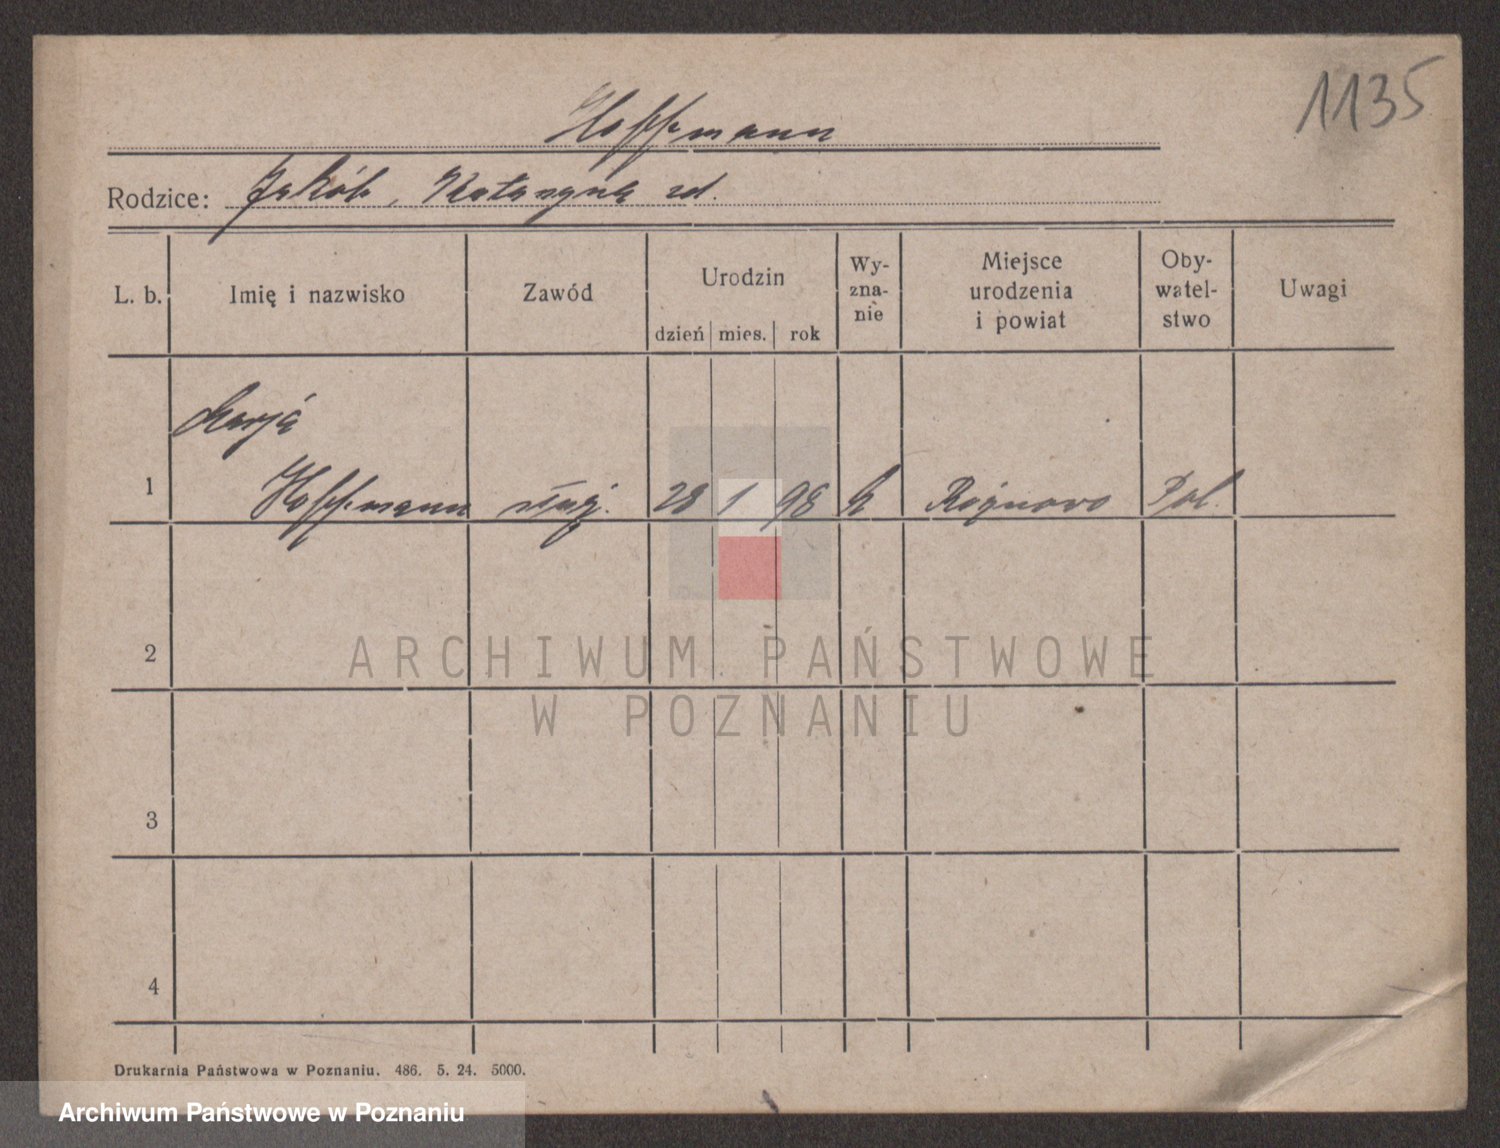 1135
Hoffmann
Rodzice: Jakób, Katarzyna zd.
L. b. Imię i nazwisko Zawód Urodzin dzień mies. rok Wy-zna-nie Miejsce urodzenia i powiat Oby-watel-stwo Uwagi
Marja
1 Hoffmann służ. 28 1 98 k Rożnowo Pol.
2
ARCHIWUM PAŃSTWOWE
W POZNANIU
3
4
Drukarnia Państwowa w Poznaniu. 486. 5. 24. 5000.
Archiwum Państwowe w Poznaniu